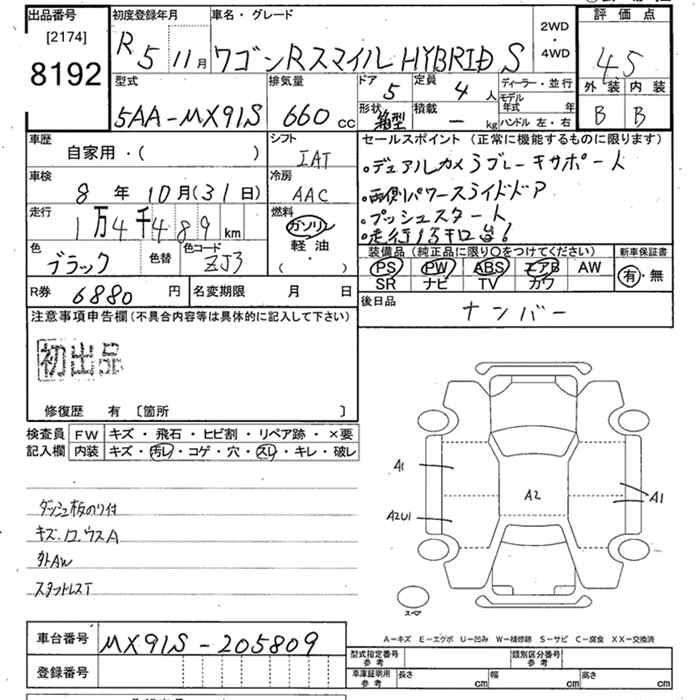 出品番号 初度登録年月 車名・グレード 2WD・4WD 評価点
[2174]
8192
R 5 11月 ワゴンRスマイル HYBRID S 4.5
型式 排気量 ドア 5 定員 4人 ディーラー・並行 外装 内装
5AA-MX91S 660cc 形状 箱型 積載 ー kg モデル年式 年 B B
ハンドル 左・右
車歴 シフト セールスポイント (正常に機能するものに限ります)
自家用・( ) IAT
・デュアルカメラブレーキサポート
車検 冷房
8年 10月(31日) AAC
・両側パワースライドドア
走行 燃料
1万4千489km ガソリン
・プッシュスタート
軽油
・( )
・走行1万キロ台!
色 色替 色コード 装備品 (純正品に限り○をつけてください) 新車保証書
ブラック ZJ3 PS PW ABS エアB AW 有・無
SR ナビ TV カワ
R券 6880円 名変期限 月 日 後日品
ナンバー
注意事項申告欄(不具合内容等は具体的に記入して下さい)
初出品
修復歴 有 〔箇所 〕
検査員 FW キズ・飛石・ヒビ割・リペア跡・×要
記入欄 内装 キズ・汚レ・コゲ・穴・スレ・キレ・破レ
A1
A2
A1
A2U1
ダッシュ板のり付
キズ.ロ.ウスA
外AW
スタットレスT
スペア
A-キズ E-エグボ U-凹み W-補修跡 S-サビ C-腐食 XX-交換済
車台番号 MX91S-205809 型式指定番号 参考 類別区分番号 参考
登録番号 車庫証明用 参考 長さ cm 幅 cm 高さ cm